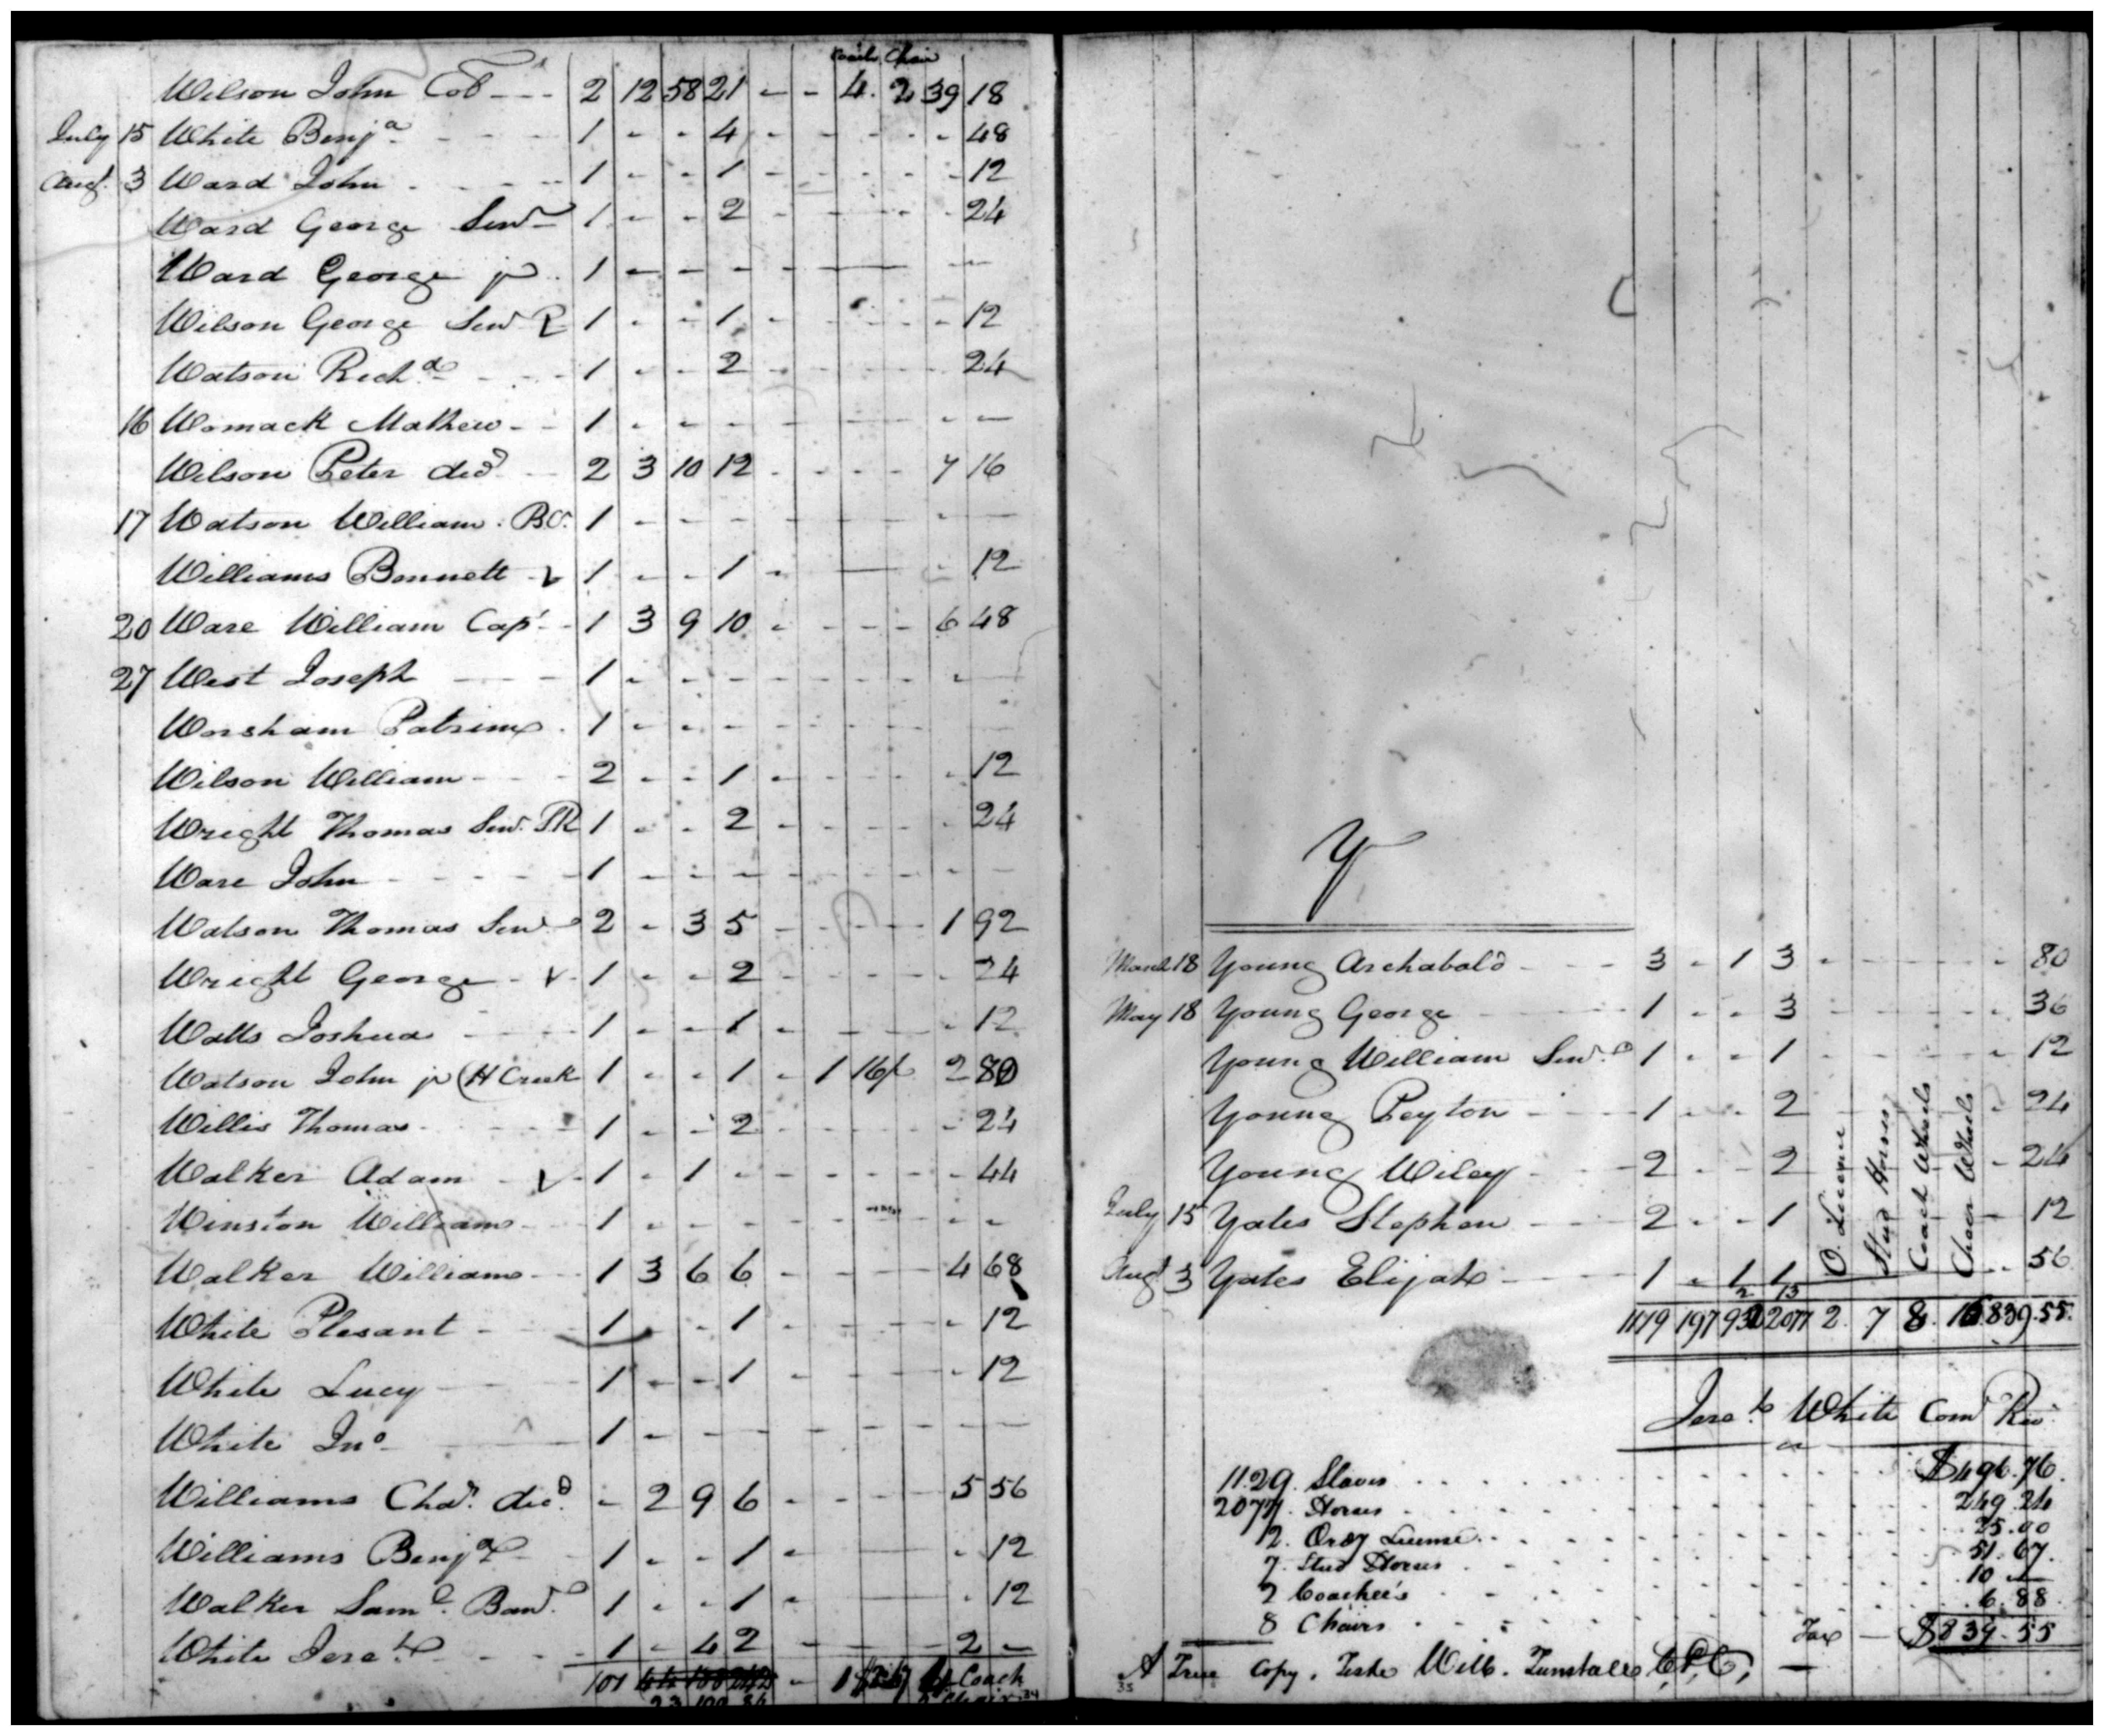 Coach Chair
Wilson John Col 2 12 58 21 - - 4. 2 39 18
July 15 White Benja 1 - - 4 - - - - - 48
Augt. 3 Ward John 1 - - 1 - - - - - 12
Ward George Senr 1 - - 2 - - - - 24
Ward George jr 1 - - - - - -
Wilson George Senr P 1 - - 1 - - - - - 12
Watson Richd 1 - - 2 - - - - 24
16 Womack Mathew 1 - - - - - - -
Wilson Peter decd 2 3 10 12 - - - - 7 16
17 Watson William. B.C. 1 - - - - - - -
Williams Bennett v 1 - - 1 - - - 12
20 Ware William Capt 1 3 9 10 - - - - 6 48
27 West Joseph 1 - - - - - - - -
Worsham Patrick 1 - - - - - - -
Wilson William 2 - - 1 - - - - - 12
Wright Thomas Senr. PR 1 - - 2 - - - - - 24
Ware John 1 - - - - - - - -
Watson Thomas Senr 2 - 3 5 - - - - 1 92
Wright George v 1 - - 2 - - - - - 24
Watts Joshua 1 - - 1 - - - - 12
Watson John jr (H Creek 1 - - 1 - 1 16/ 2 80
Willis Thomas 1 - - 2 - - - - - 24
Walker Adam v 1 - 1 - - - - - - 44
Winston William 1 - - - - - - - -
Walker William 1 3 6 6 - - - - 4 68
White Plesant 1 - - 1 - - - - - 12
White Lucy 1 - - 1 - - - - - 12
White Jno 1 - - - - - - - -
Williams Chas. decd. - 2 9 6 - - - - 5 56
Williams Benja 1 - - 1 - - - 12
Walker Saml. Band. 1 - - 1 - - - 12
White Jereh 1 - 4 2 - - - 2 -
101 Coach
23 100 Chair 34
Y
March 18 Young Archabald 3 - 1 3 - - - - - 80
May 18 Young George 1 - - 3 - - - - - 36
Young William Senr. 1 - - 1 - - - - - 12
Young Peyton 1 - - 2 - 24
Young Wiley 2 - - 2 - 24
July 15 Yates Stephen 2 - - 1 - 12
Augt 3 Yates Elijah 1 - 1 1 - 56
O. License
Stud Horses
Coach Wheels
Chair Wheels
2 13
1179 197 932 2077 2. 7 8. 16 839.55.
Jereh White Comr Rev.
1129. Slaves $496.76.
2077. Horses 249.24
2. Ordy License 25.00
7. Stud Horses 51.67.
2 Coachee's 10
8 Chairs 6.88
Tax $839.55
A True Copy. Teste Will. Tunstall C.P.C,
35